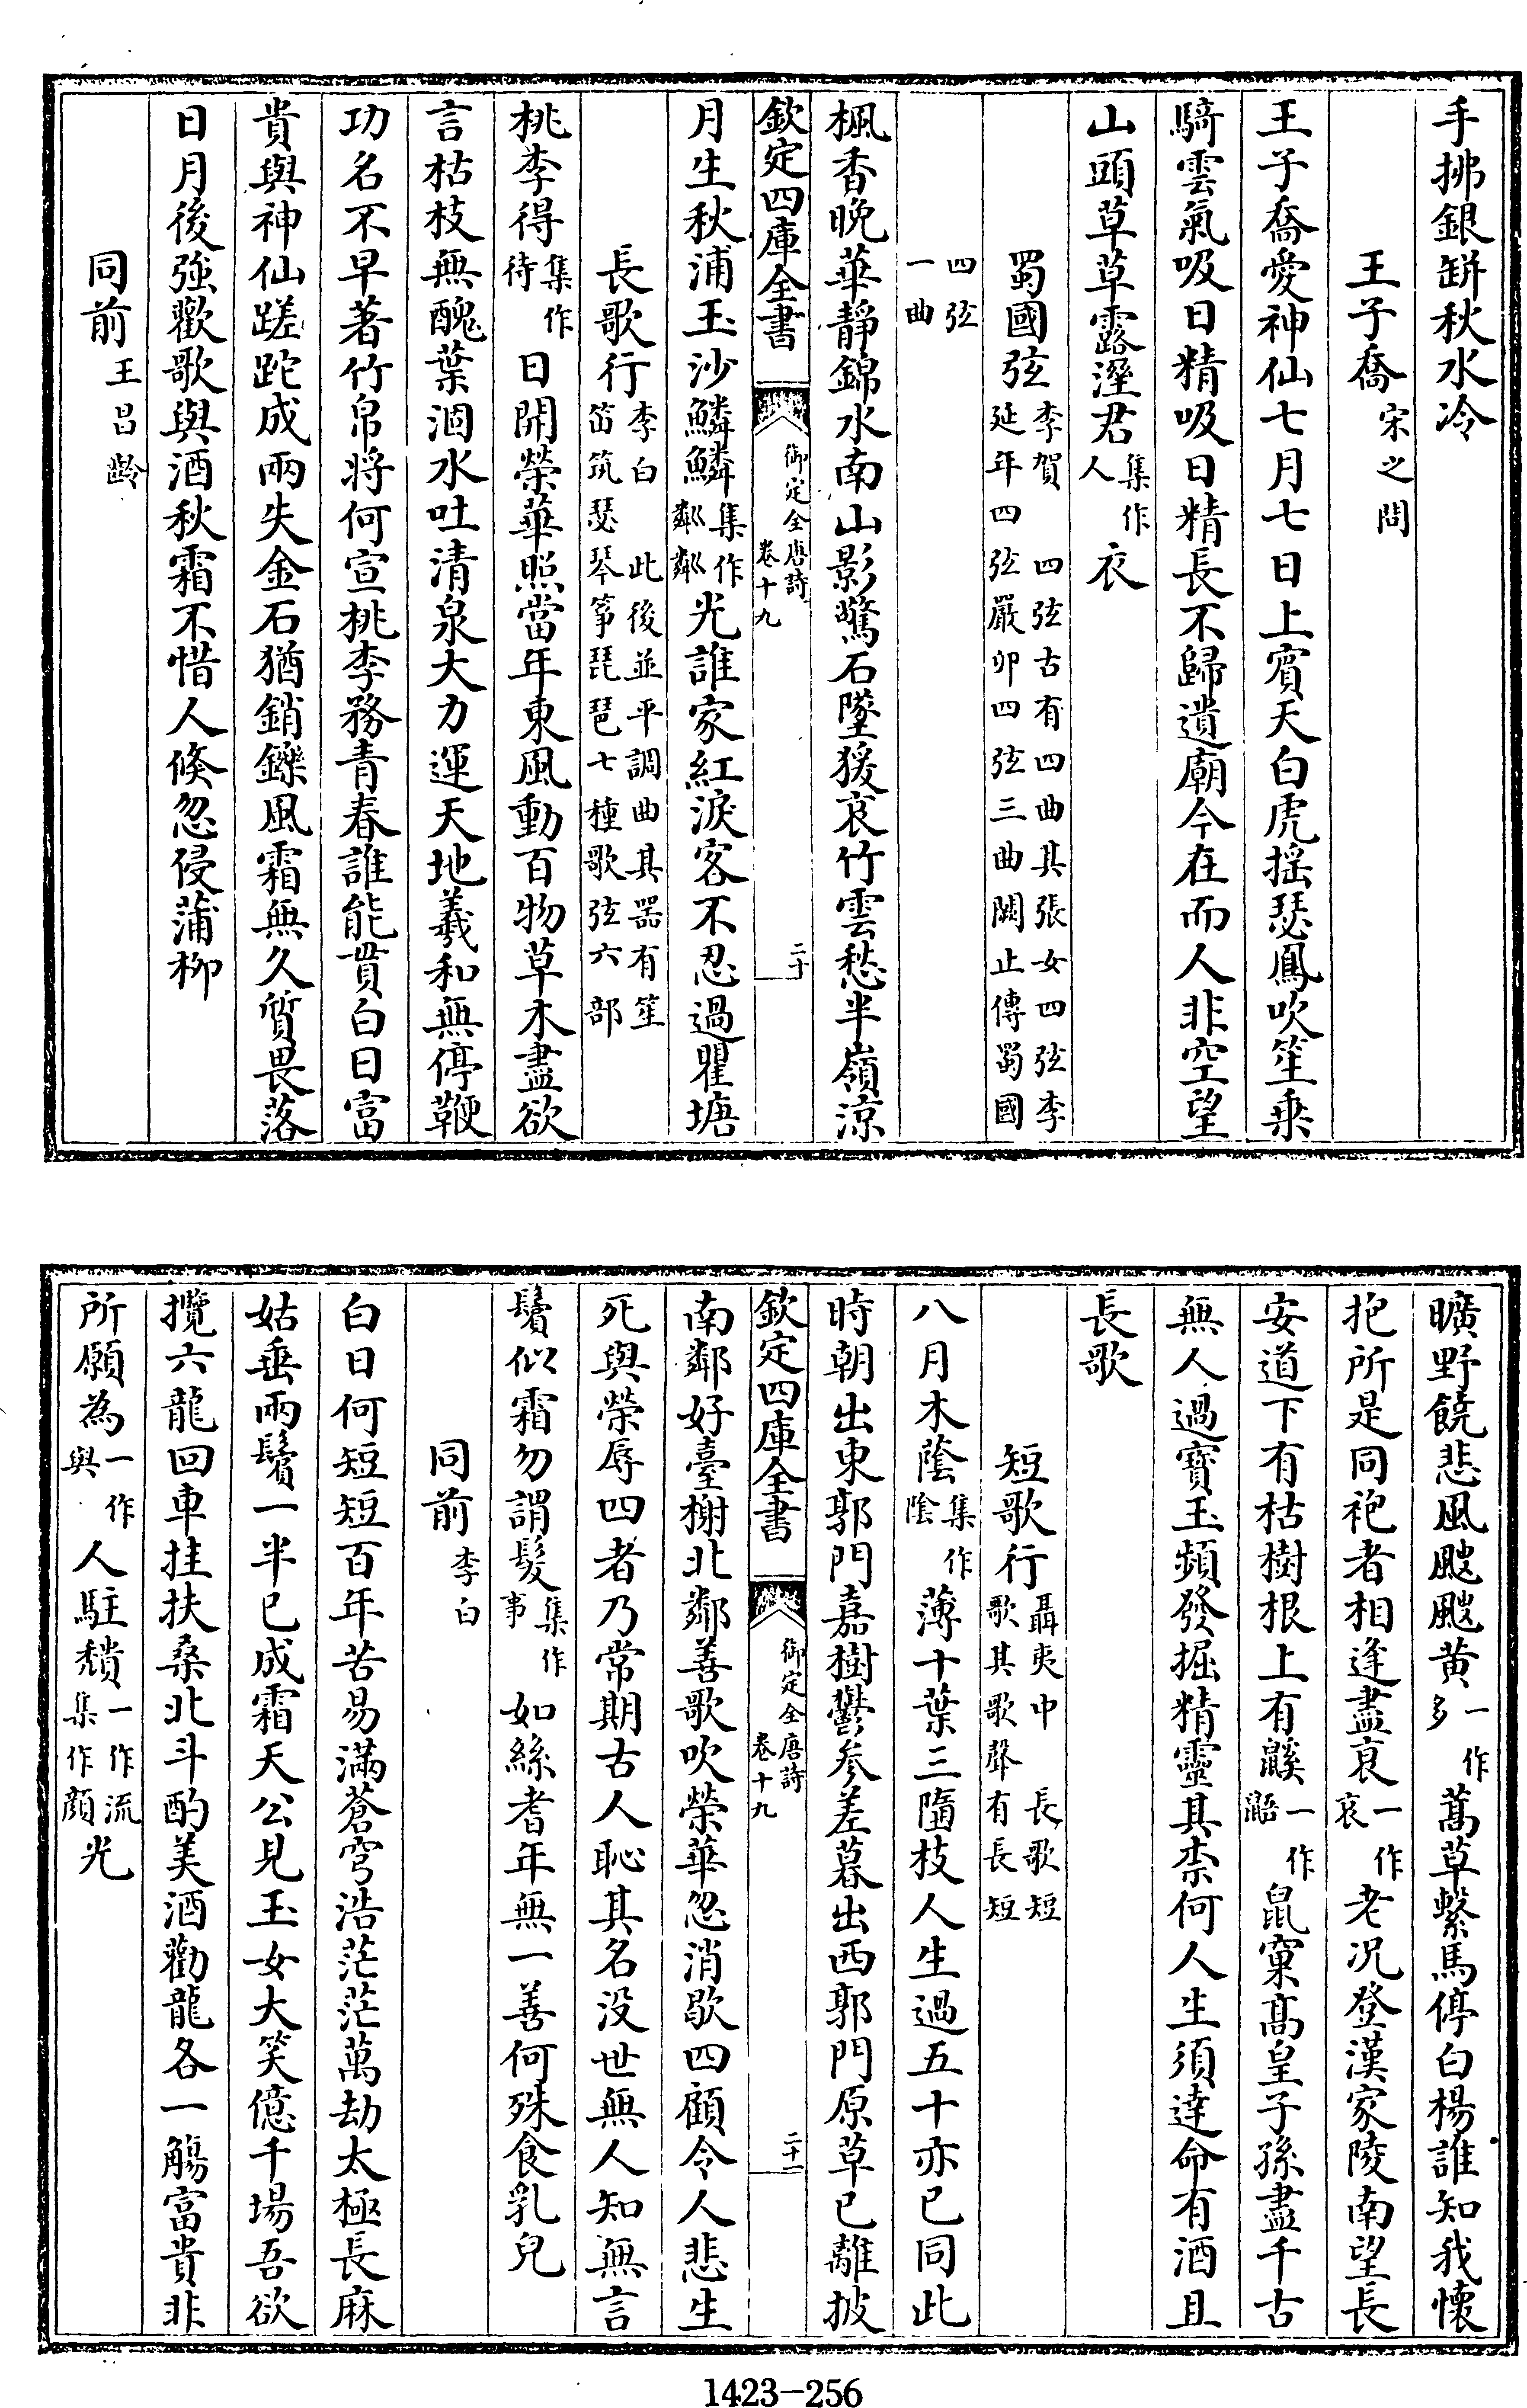 手拂銀缾秋水冷
王子喬宋之問
王子喬愛神仙七月七日上賓天白虎摇瑟鳳吹笙乗
騎雲氣吸日精吸日精長不歸遺廟今在而人非空望
山頭草草露溼君集作人衣
蜀國弦李賀 四弦古有四曲其張女四弦李延年四弦嚴卯四弦三曲闕止傳蜀國
四弦一曲
楓香晚華靜錦水南山影驚石墜猨哀竹雲愁半嶺涼
欽定四庫全書 御定全唐詩卷十九 二十
月生秋浦玉沙鱗鱗集作粼粼光誰家紅淚客不忍過瞿塘
長歌行李白 此後並平調曲其器有笙笛筑瑟琴筝琵琶七種歌弦六部
桃李得集作待日開榮華照當年東風動百物草木盡欲
言枯枝無醜葉涸水吐清泉大力運天地羲和無停鞭
功名不早著竹帛将何宣桃李務青春誰能貰白日富
貴與神仙蹉跎成兩失金石猶銷鑠風霜無久質畏落
日月後強歡歌與酒秋霜不惜人倏忽侵蒲柳
同前王昌齡
曠野饒悲風颼颼黄一作多蒿草繫馬停白楊誰知我懷
抱所是同袍者相逢盡衰一作哀老况登漢家陵南望長
安道下有枯樹根上有鼷一作鼯鼠窠髙皇子孫盡千古
無人過寳玉頻發掘精靈其柰何人生須達命有酒且
長歌
短歌行聶夷中 長歌短歌其歌聲有長短
八月木蔭集作陰薄十葉三墮枝人生過五十亦已同此
時朝出東郭門嘉樹鬱參差暮出西郭門原草已離披
欽定四庫全書 御定全唐詩卷十九 二十一
南鄰好臺榭北鄰善歌吹榮華忽消歇四顧令人悲生
死與榮辱四者乃常期古人恥其名没世無人知無言
鬢似霜勿謂髮集作事如絲耆年無一善何殊食乳兒
同前李白
白日何短短百年苦易滿蒼穹浩茫茫萬劫太極長麻
姑垂兩鬢一半已成霜天公見玉女大笑億千場吾欲
攬六龍回車挂扶桑北斗酌美酒勸龍各一觴富貴非
所願為一作與人駐頹一作流集作顔光
1423-256